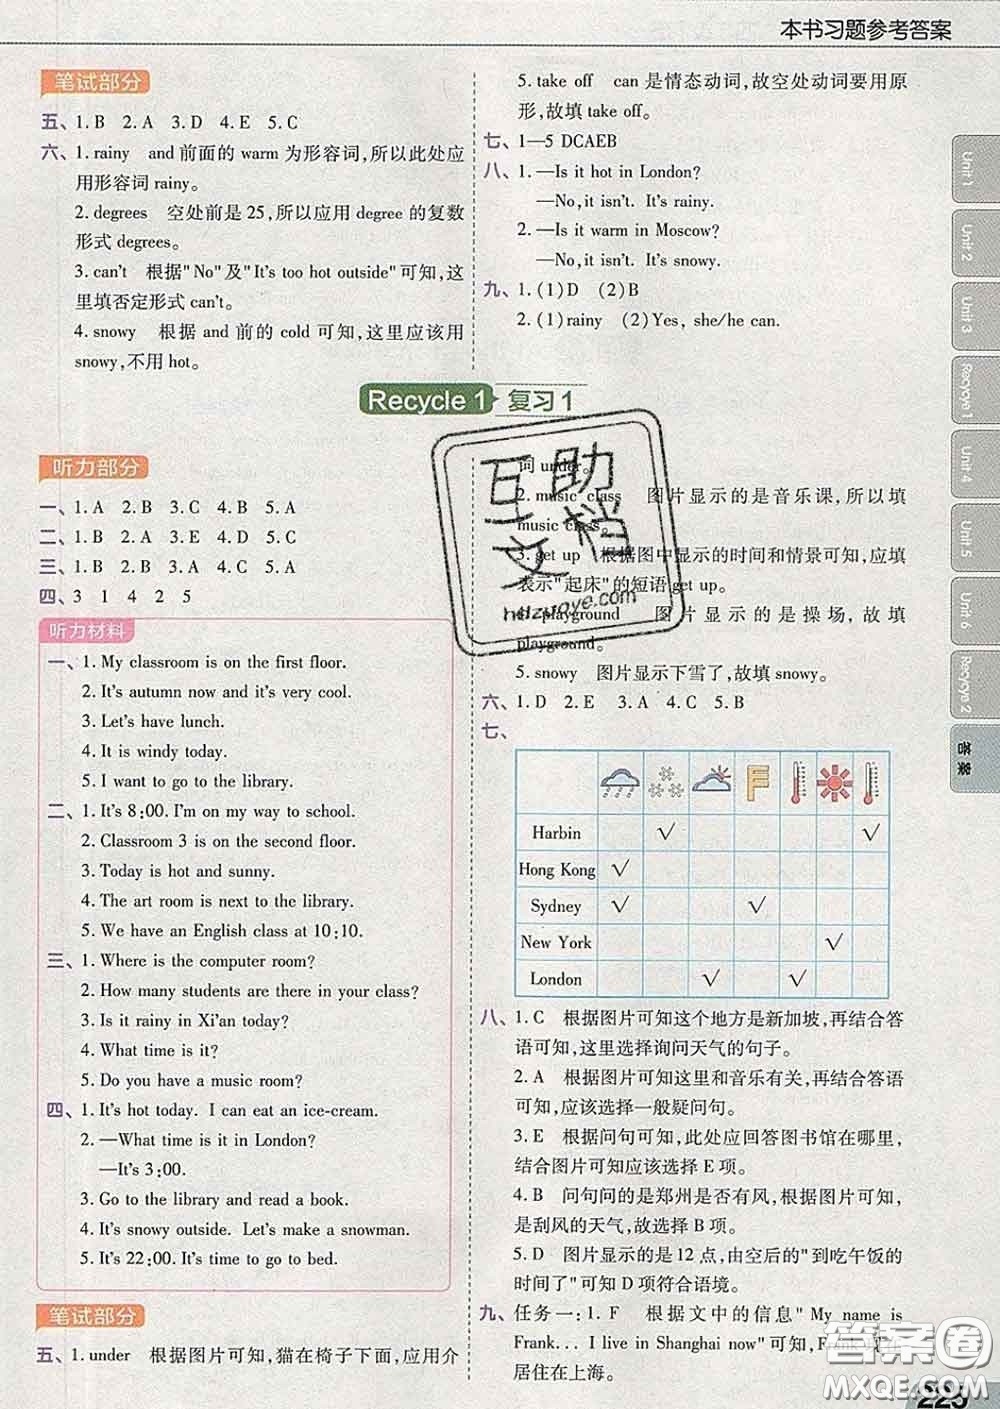 本书习题参考答案
笔试部分
五、1. B 2. A 3. D 4. E 5. C
六、1. rainy and 前面的 warm 为形容词,所以此处应
用形容词 rainy。
2. degrees 空处前是 25,所以应用 degree 的复数
形式 degrees。
3. can't 根据"No"及"It's too hot outside"可知,这
里填否定形式 can't。
4. snowy 根据 and 前的 cold 可知,这里应该用
snowy,不用 hot。
5. take off can 是情态动词,故空处动词要用原
形,故填 take off。
七、1—5 DCAEB
八、1. —Is it hot in London?
—No,it isn't. It's rainy.
2. —Is it warm in Moscow?
—No,it isn't. It's snowy.
九、1. (1)D (2)B
2. (1)rainy (2)Yes, she/he can.
Recycle 1 复习 1
听力部分
一、1. A 2. B 3. C 4. B 5. A
二、1. B 2. A 3. B 4. D 5. C
三、1. B 2. B 3. C 4. A 5. A
四、3 1 4 2 5
听力材料
一、1. My classroom is on the first floor.
2. It's autumn now and it's very cool.
3. Let's have lunch.
4. It is windy today.
5. I want to go to the library.
二、1. It's 8:00. I'm on my way to school.
2. Classroom 3 is on the second floor.
3. Today is hot and sunny.
4. The art room is next to the library.
5. We have an English class at 10:10.
三、1. Where is the computer room?
2. How many students are there in your class?
3. Is it rainy in Xi'an today?
4. What time is it?
5. Do you have a music room?
四、1. It's hot today. I can eat an ice-cream.
2. —What time is it in London?
—It's 3:00.
3. Go to the library and read a book.
4. It's snowy outside. Let's make a snowman.
5. It's 22:00. It's time to go to bed.
笔试部分
五、1. under 根据图片可知,猫在椅子下面,应用介
词 under。
2. music class 图片显示的是音乐课,所以填
music class。
3. get up 根据图中显示的时间和情景可知,应填
表示"起床"的短语 get up。
4. playground 图片显示的是操场,故填
playground。
5. snowy 图片显示下雪了,故填 snowy。
六、1. D 2. E 3. A 4. C 5. B
七、
Harbin √ √
Hong Kong √
Sydney √ √
New York √
London √ √
八、1. C 根据图片可知这个地方是新加坡,再结合答
语可知,这里选择询问天气的句子。
2. A 根据图片可知这里和音乐有关,再结合答语
可知,应该选择一般疑问句。
3. E 根据问句可知,此处应回答图书馆在哪里,
结合图片可知应该选择 E 项。
4. B 问句问的是郑州是否有风,根据图片可知,
是刮风的天气,故选择 B 项。
5. D 图片显示的是 12 点,由空后的"到吃午饭的
时间了"可知 D 项符合语境。
九、任务一:1. F 根据文中的信息"My name is
Frank... I live in Shanghai now"可知,
居住在上海。
Unit 1
Unit 2
Unit 3
Recycye 1
Unit 4
Unit 5
Unit 6
Recycye 2
答案
互助
文档
hdzuoye.com
答案圈
MXQE.COM
225